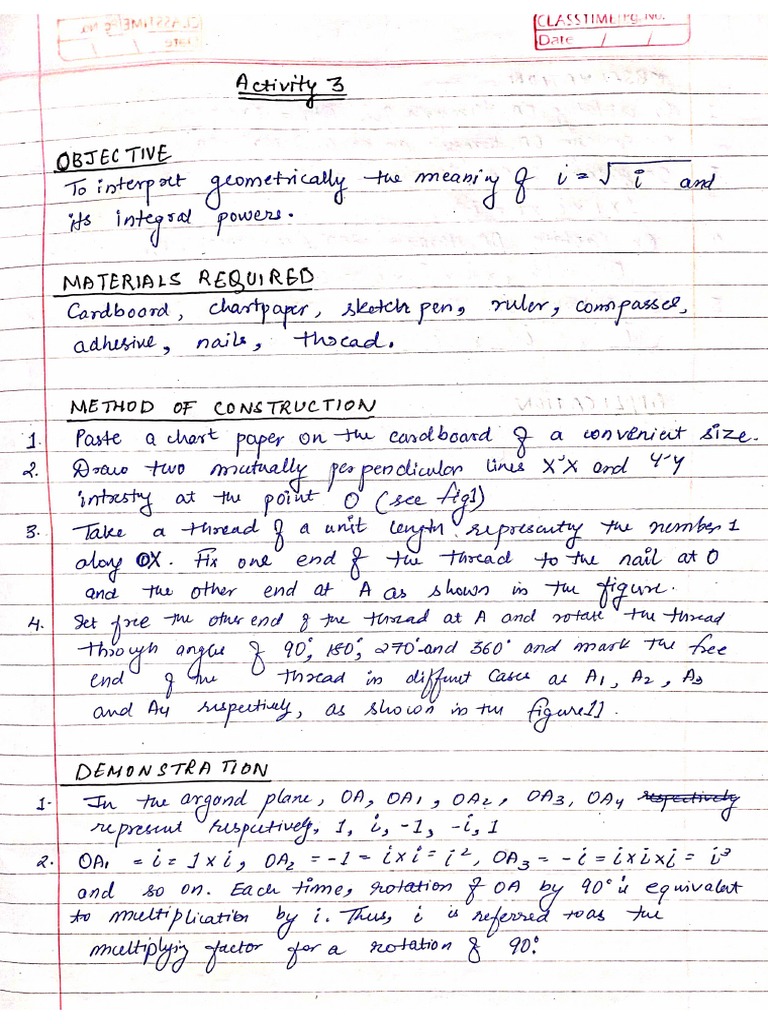 CLASSTIME Pg. No.
Date / /
Activity 3
OBJECTIVE
To interpret geometrically the meaning of i = √i and
its integral powers.
MATERIALS REQUIRED
Cardboard, chartpaper, sketch pen, ruler, compasses,
adhesive, nails, thread.
METHOD OF CONSTRUCTION
1. Paste a chart paper on the cardboard of a convenient size.
2. Draw two mutually perpendicular lines X'X and Y'Y
intresty at the point O (see fig1)
3. Take a thread of a unit length representy the number 1
along OX. Fix one end of the thread to the nail at O
and the other end at A as shown in the figure.
4. Set free the other end of the thread at A and rotate the thread
through angles of 90°, 180°, 270° and 360° and mark the free
end of the thread in diffrent cases as A1, A2, A3
and A4 respectively, as shown in the figure 1].
DEMONSTRATION
1. In the argand plane, OA, OA1, OA2, OA3, OA4 respectively
represent respectively, 1, i, -1, -i, 1
2. OA1 = i = 1 x i, OA2 = -1 = i x i = i², OA3 = -i = i x i x i = i³
and so on. Each time, rotation of OA by 90° is equivalent
to multiplication by i. Thus, i is referred to as the
multiplying factor for a rotation of 90°.